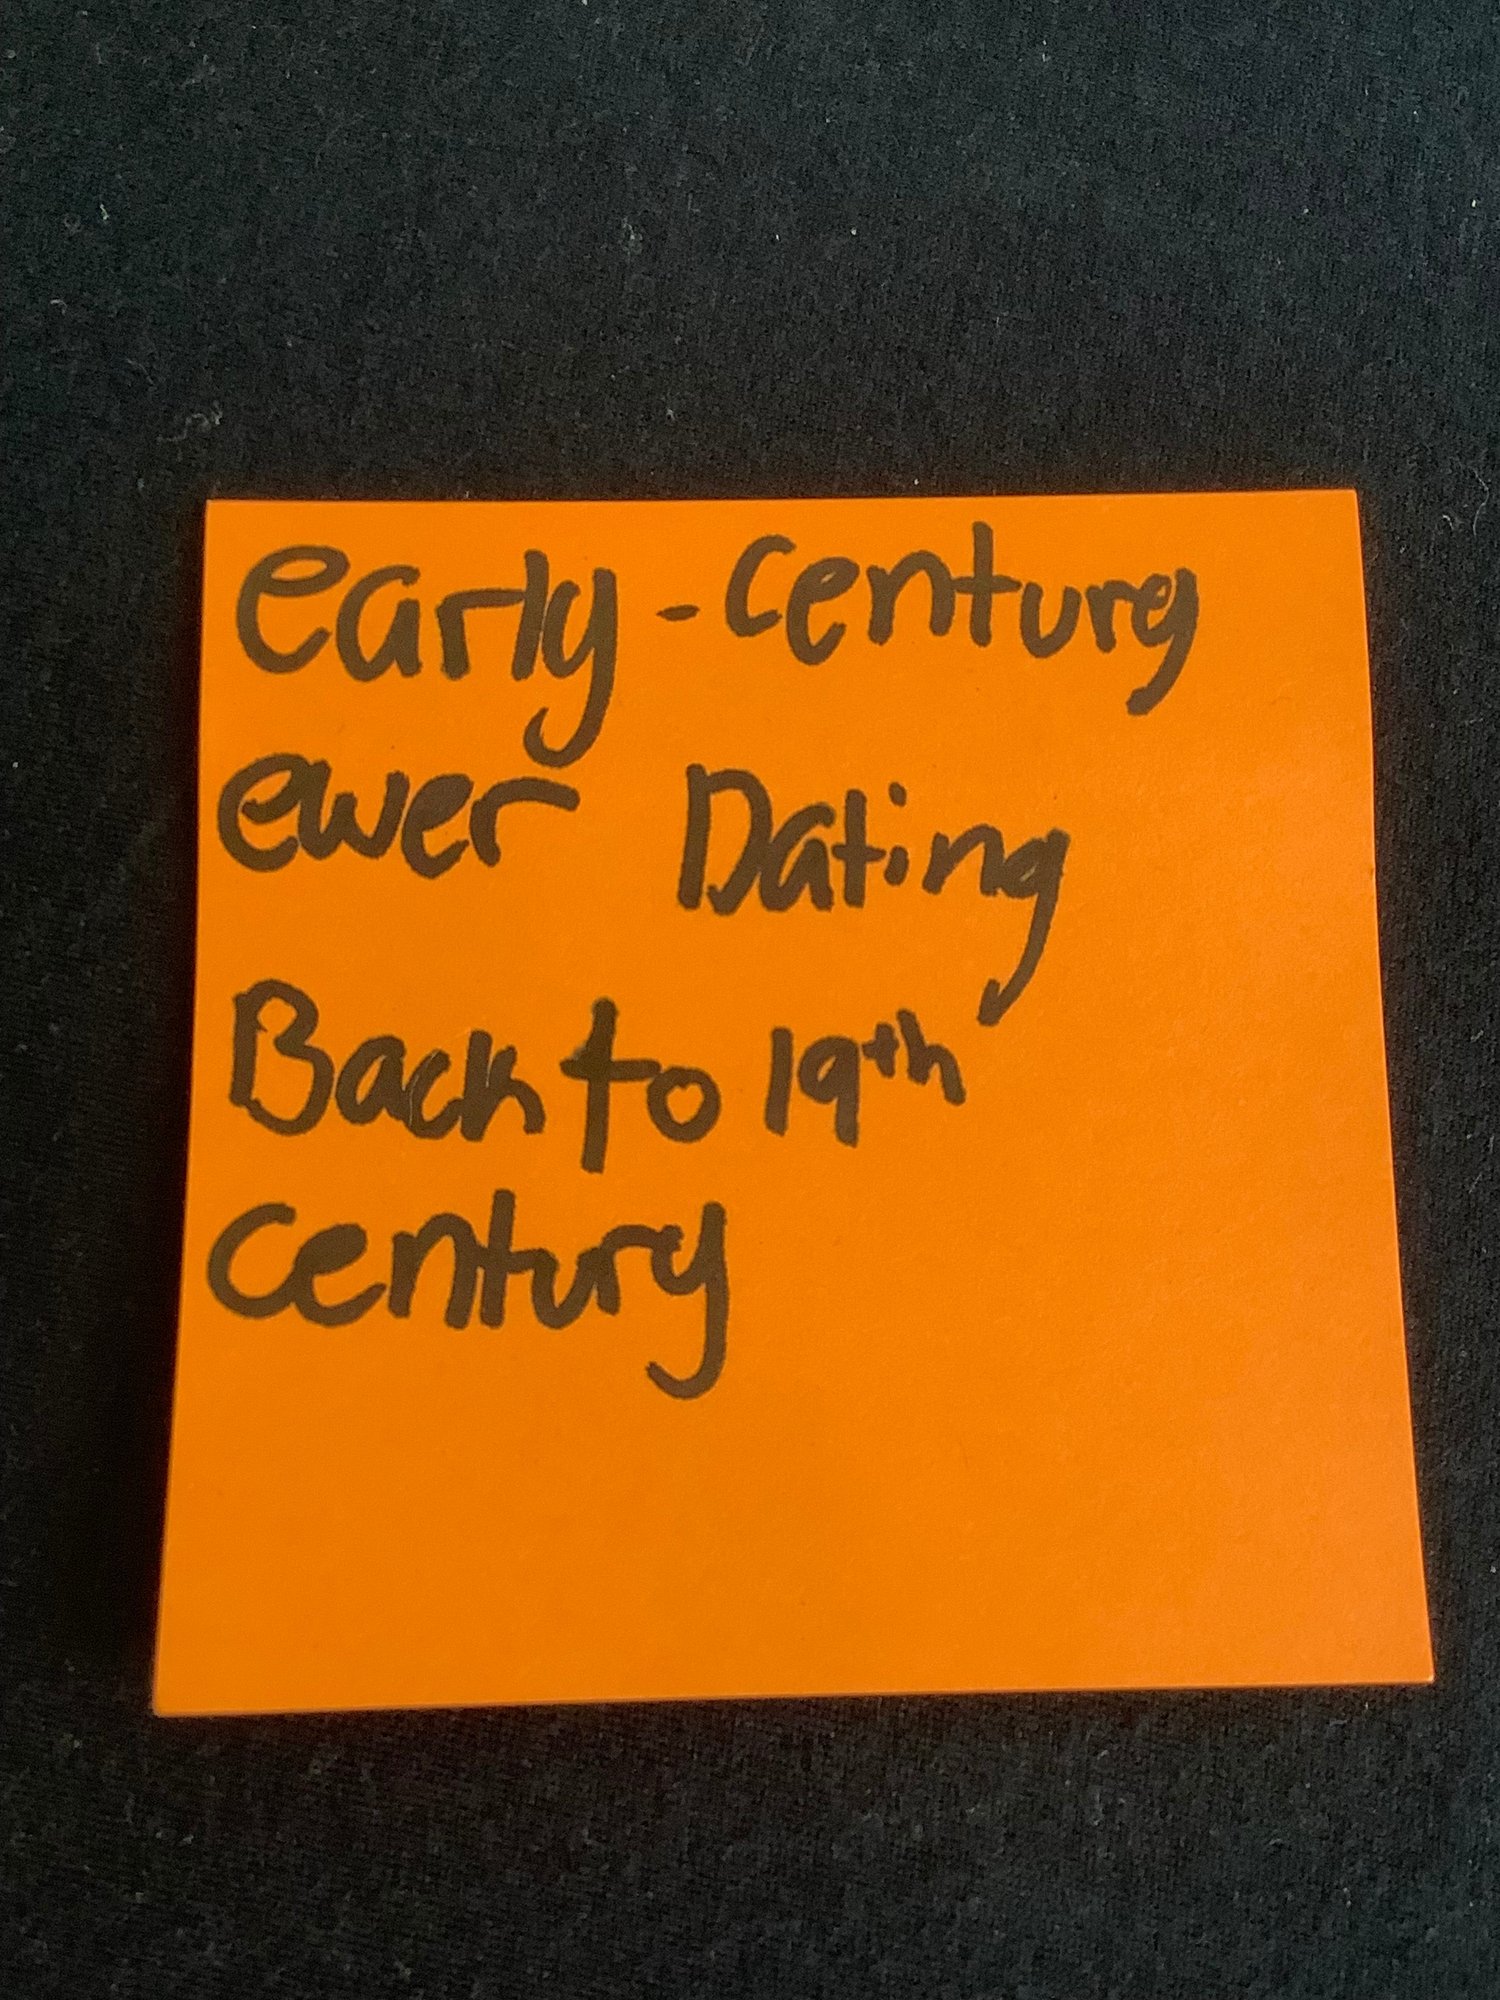 early-century
ewer Dating
Back to 19th
century